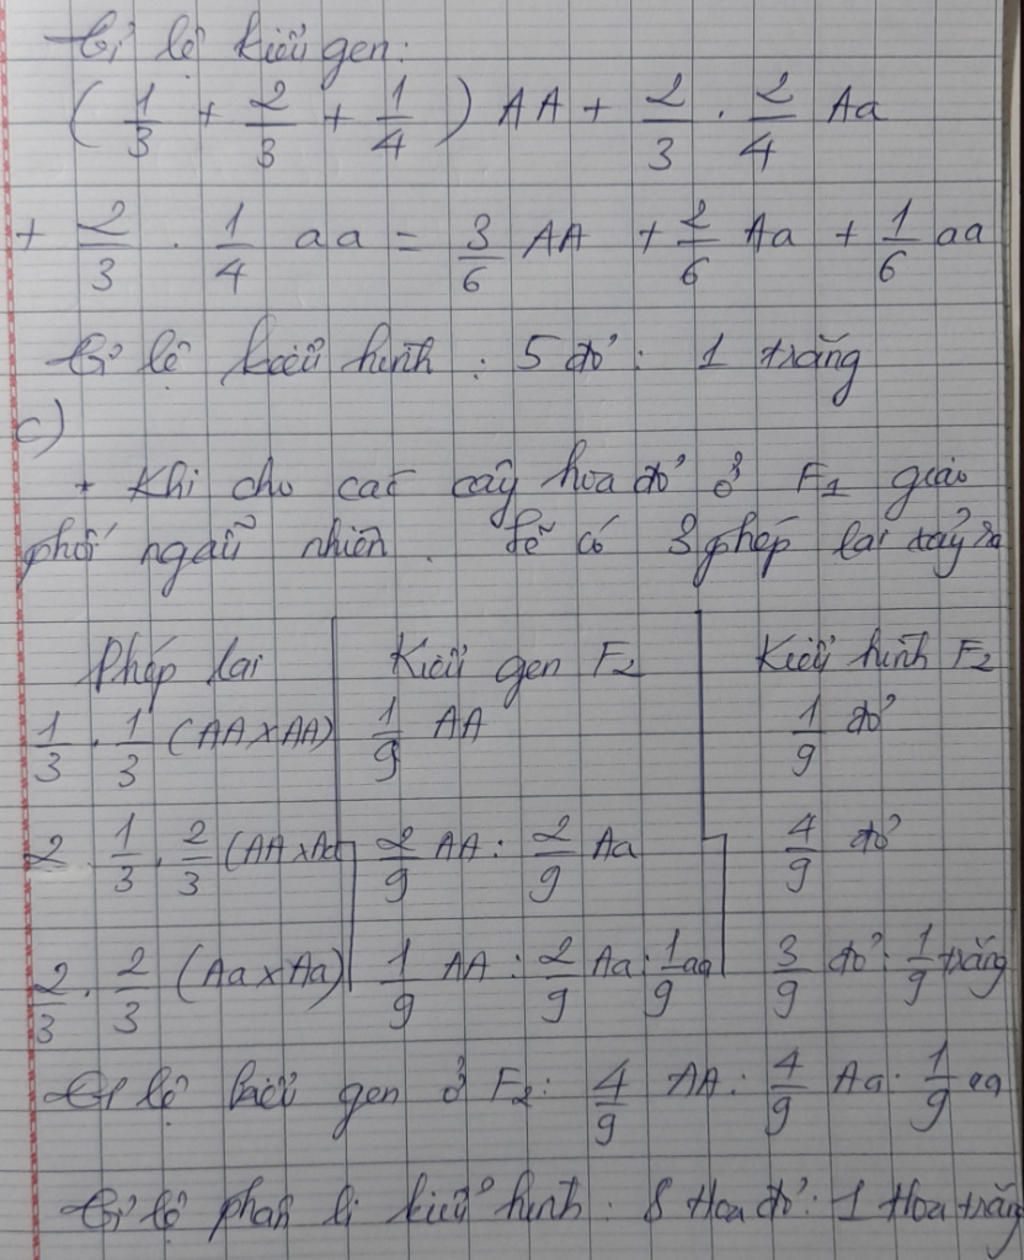 Tỉ lệ kiểu gen:
(1/3 + 2/3 + 1/4) AA + 2/3 . 2/4 Aa
+ 2/3 . 1/4 aa = 3/6 AA + 2/6 Aa + 1/6 aa
Tỉ lệ kiểu hình : 5 đỏ : 1 trắng
c)
+ Khi cho các cây hoa đỏ ở F1 giao
phối ngẫu nhiên . Sẽ có 3 phép lai xảy ra
Phép lai Kiểu gen F2 Kiểu hình F2
1/3 . 1/3 (AA x AA) 1/9 AA 1/9 đỏ
2 . 1/3 . 2/3 (AA x Aa 2/9 AA : 2/9 Aa 4/9 đỏ
2/3 . 2/3 (Aa x Aa) 1/9 AA : 2/9 Aa : 1/9 aa 3/9 đỏ : 1/9 trắng
Tỉ lệ kiểu gen ở F2 : 4/9 AA : 4/9 Aa : 1/9 aa
Tỉ lệ phân li kiểu hình : 8 Hoa đỏ : 1 Hoa trắng